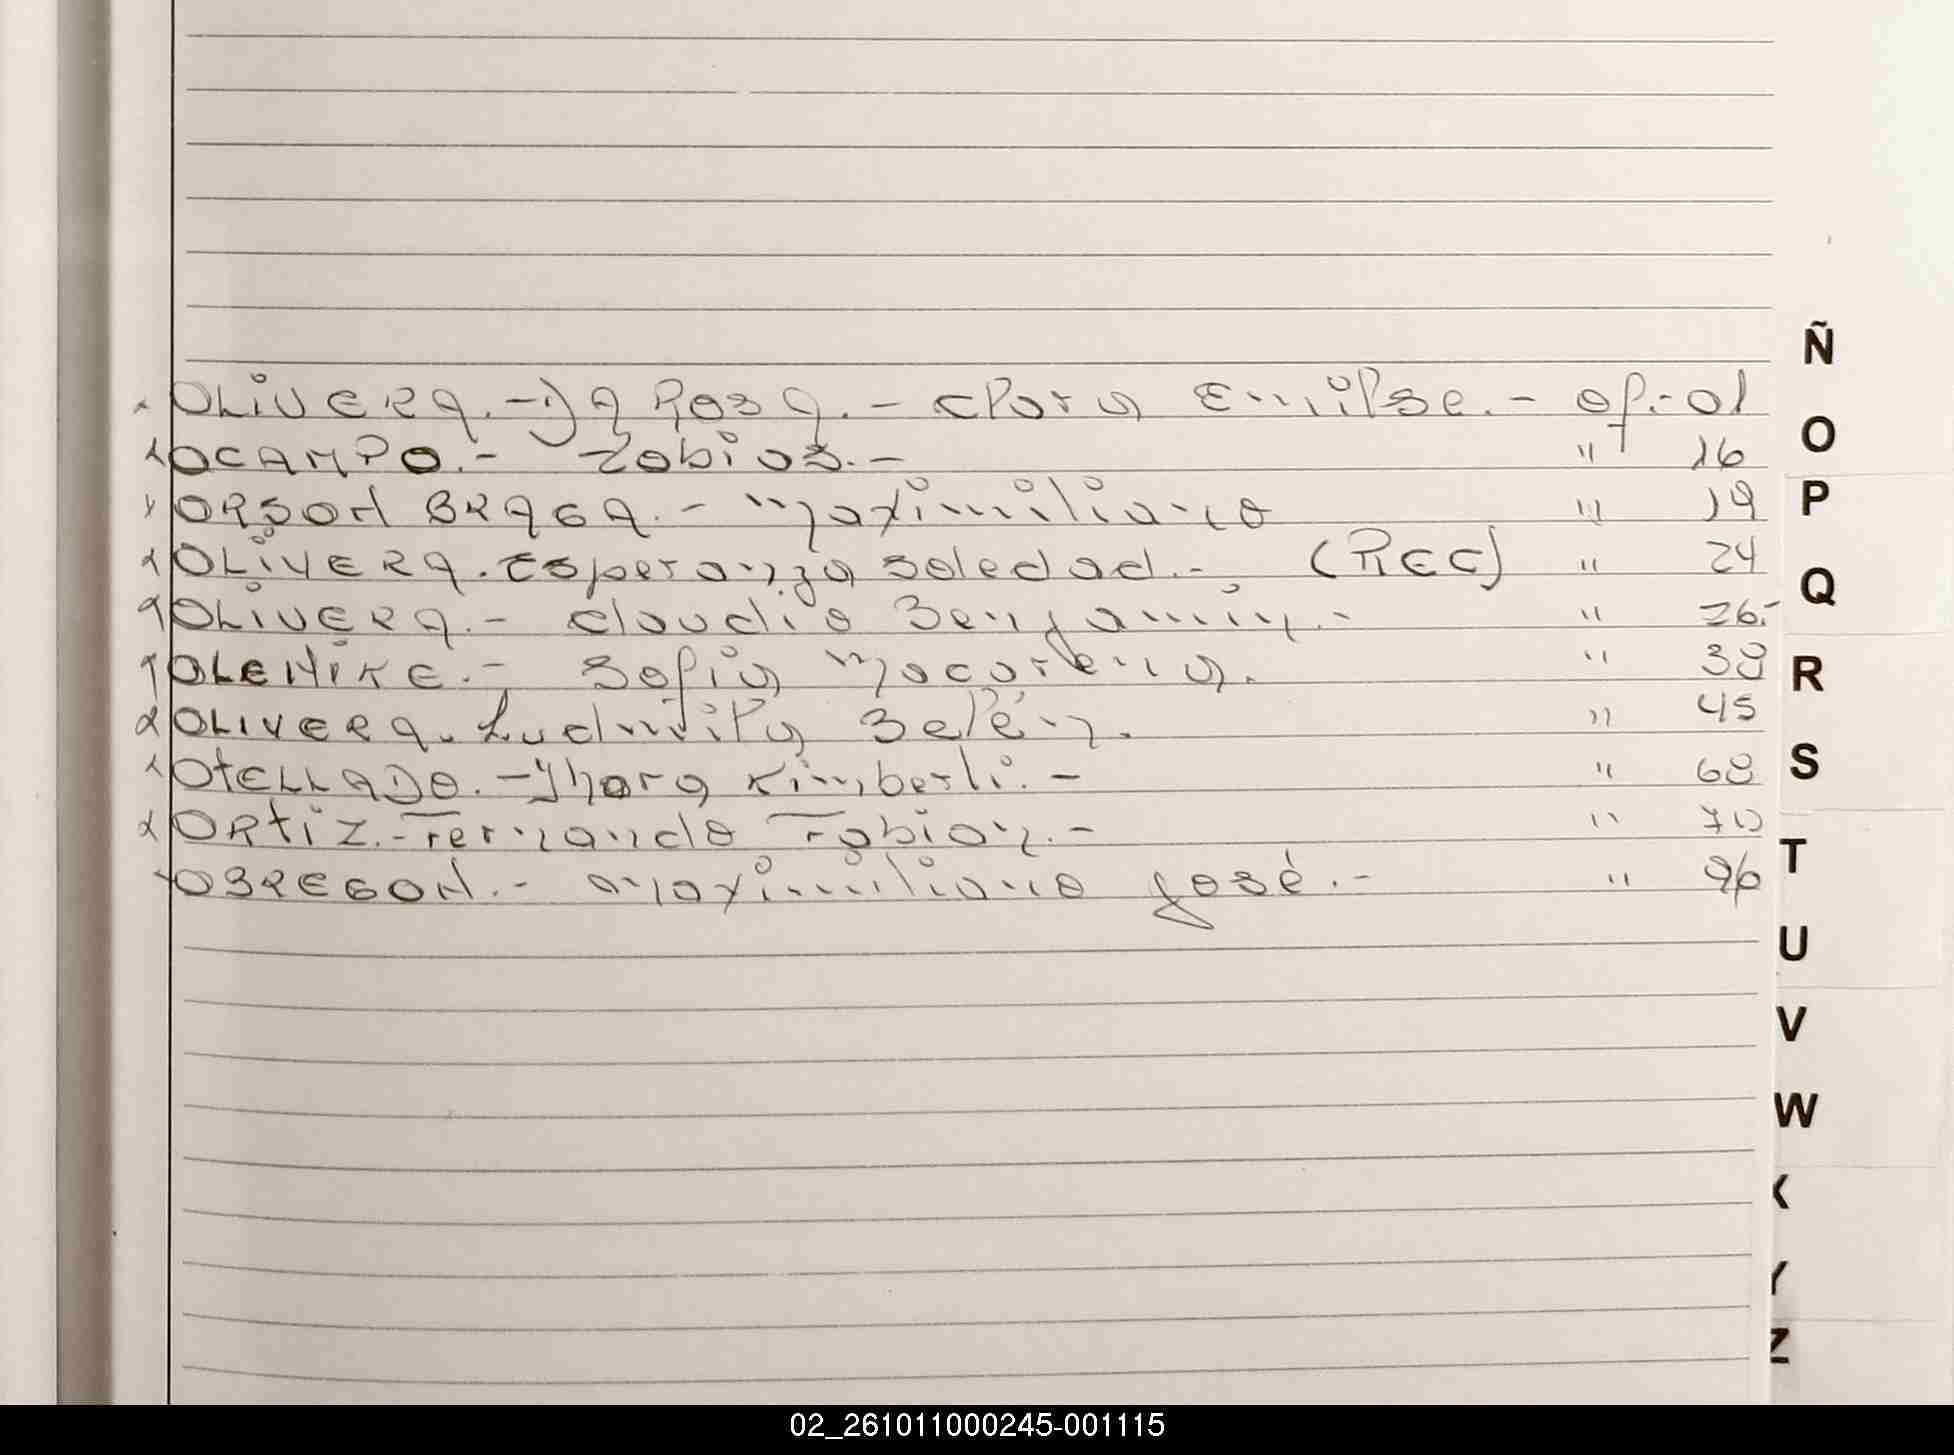 OLIVERA.- DA ROSA.- Clara Emilse.- of.- 01
OCAMPO.- Tobias.- " 16
ORSON BRAGA.- Maximiliano " 19
OLIVERA. Esperanza Soledad.- (REC) " 24
OLIVERA.- Claudio Benjamin.- " 26.-
OLENIKE.- Sofia Macarena. " 38
OLIVERA. Ludmila Belén. " 45
OTELLADO.- Yhara Kimberli.- " 68
ORTIZ.- Fernando Fabian.- " 70
OBREGON.- Maximiliano José.- " 96
Ñ
O
P
Q
R
S
T
U
V
W
X
Y
Z
02_261011000245-001115